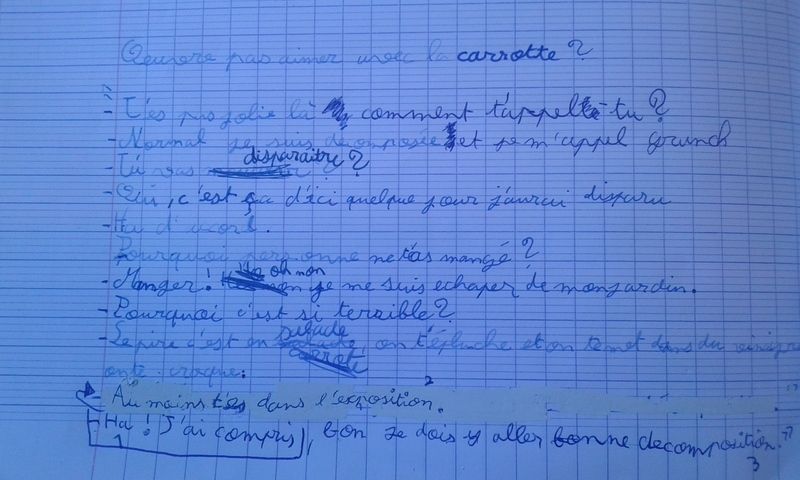 pas aimer avec la carrotte ?
"
- T'es pas jolie là comment t'appelle-tu ?
- Normal je suis decomposée et je m'appel grunch
- Tu vas disparaître ?
- Oui, c'est ça d'ici quelque jour j'aurai disparu
- Ha d'acord.
Pourquoi personne ne t'as mangé ?
- Manger ! oh non je me suis echaper de mon jardin.
- Pourquoi c'est si terrible ?
- Le pire c'est en salade, on t'épluche et on te met dans du
on te croque.
- Au moins t'es dans l'exposition. 2
- Ha ! J'ai compris, bon je dois y aller bonne decomposition."
1 3